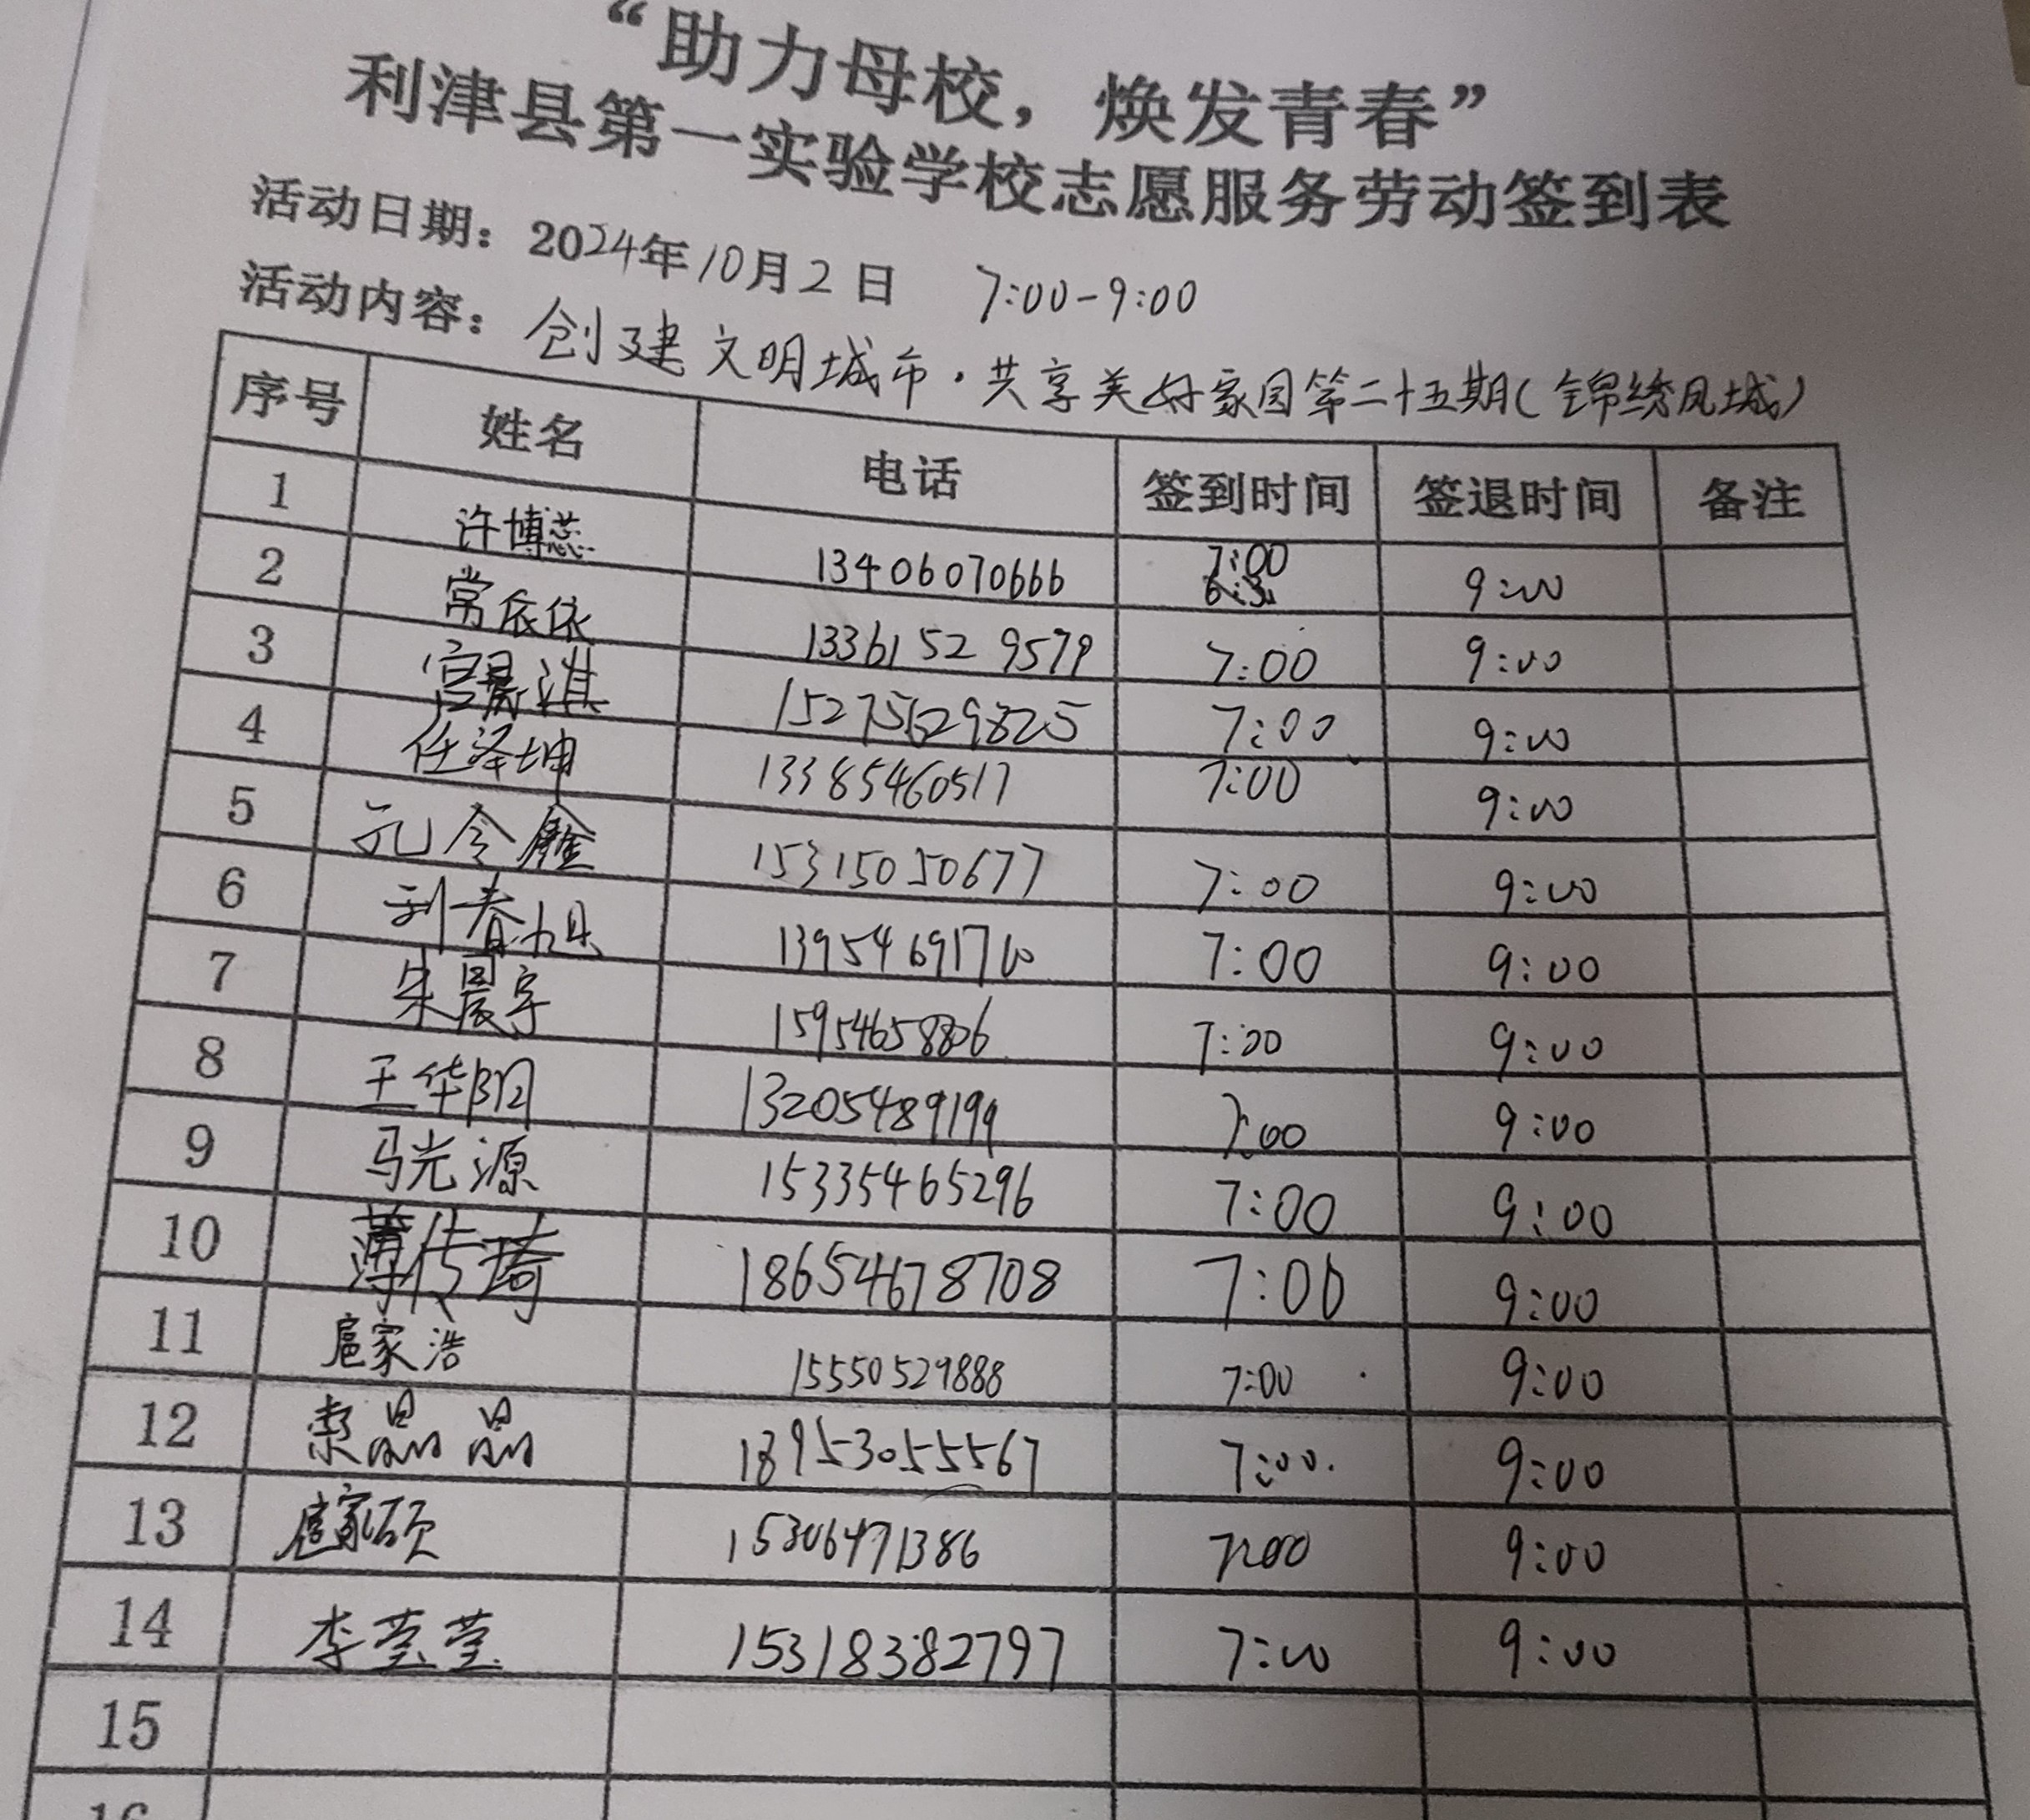 “助力母校，焕发青春”
利津县第一实验学校志愿服务劳动签到表
活动日期：2024年10月2日 7:00-9:00
活动内容：创建文明城市·共享美好家园第二十五期(锦绣凤城)
序号 姓名 电话 签到时间 签退时间 备注
1 许博蕊 13406070666 7:00 9:00
2 常依依 13361529579 7:00 9:00
3 宫晨淇 15275629825 7:00 9:00
4 任泽坤 13385460517 7:00 9:00
5 15315050677 7:00 9:00
6 刘春旭 13954691710 7:00 9:00
7 朱晨宇 15954658806 7:00 9:00
8 王华阳 13205489199 7:00 9:00
9 马光源 15335465296 7:00 9:00
10 薄传琦 18654678708 7:00 9:00
11 扈家浩 15550529888 7:00 9:00
12 索晶晶 18953055567 7:00 9:00
13 扈家硕 15306471386 7:00 9:00
14 李莹莹 15318382797 7:00 9:00
15
16